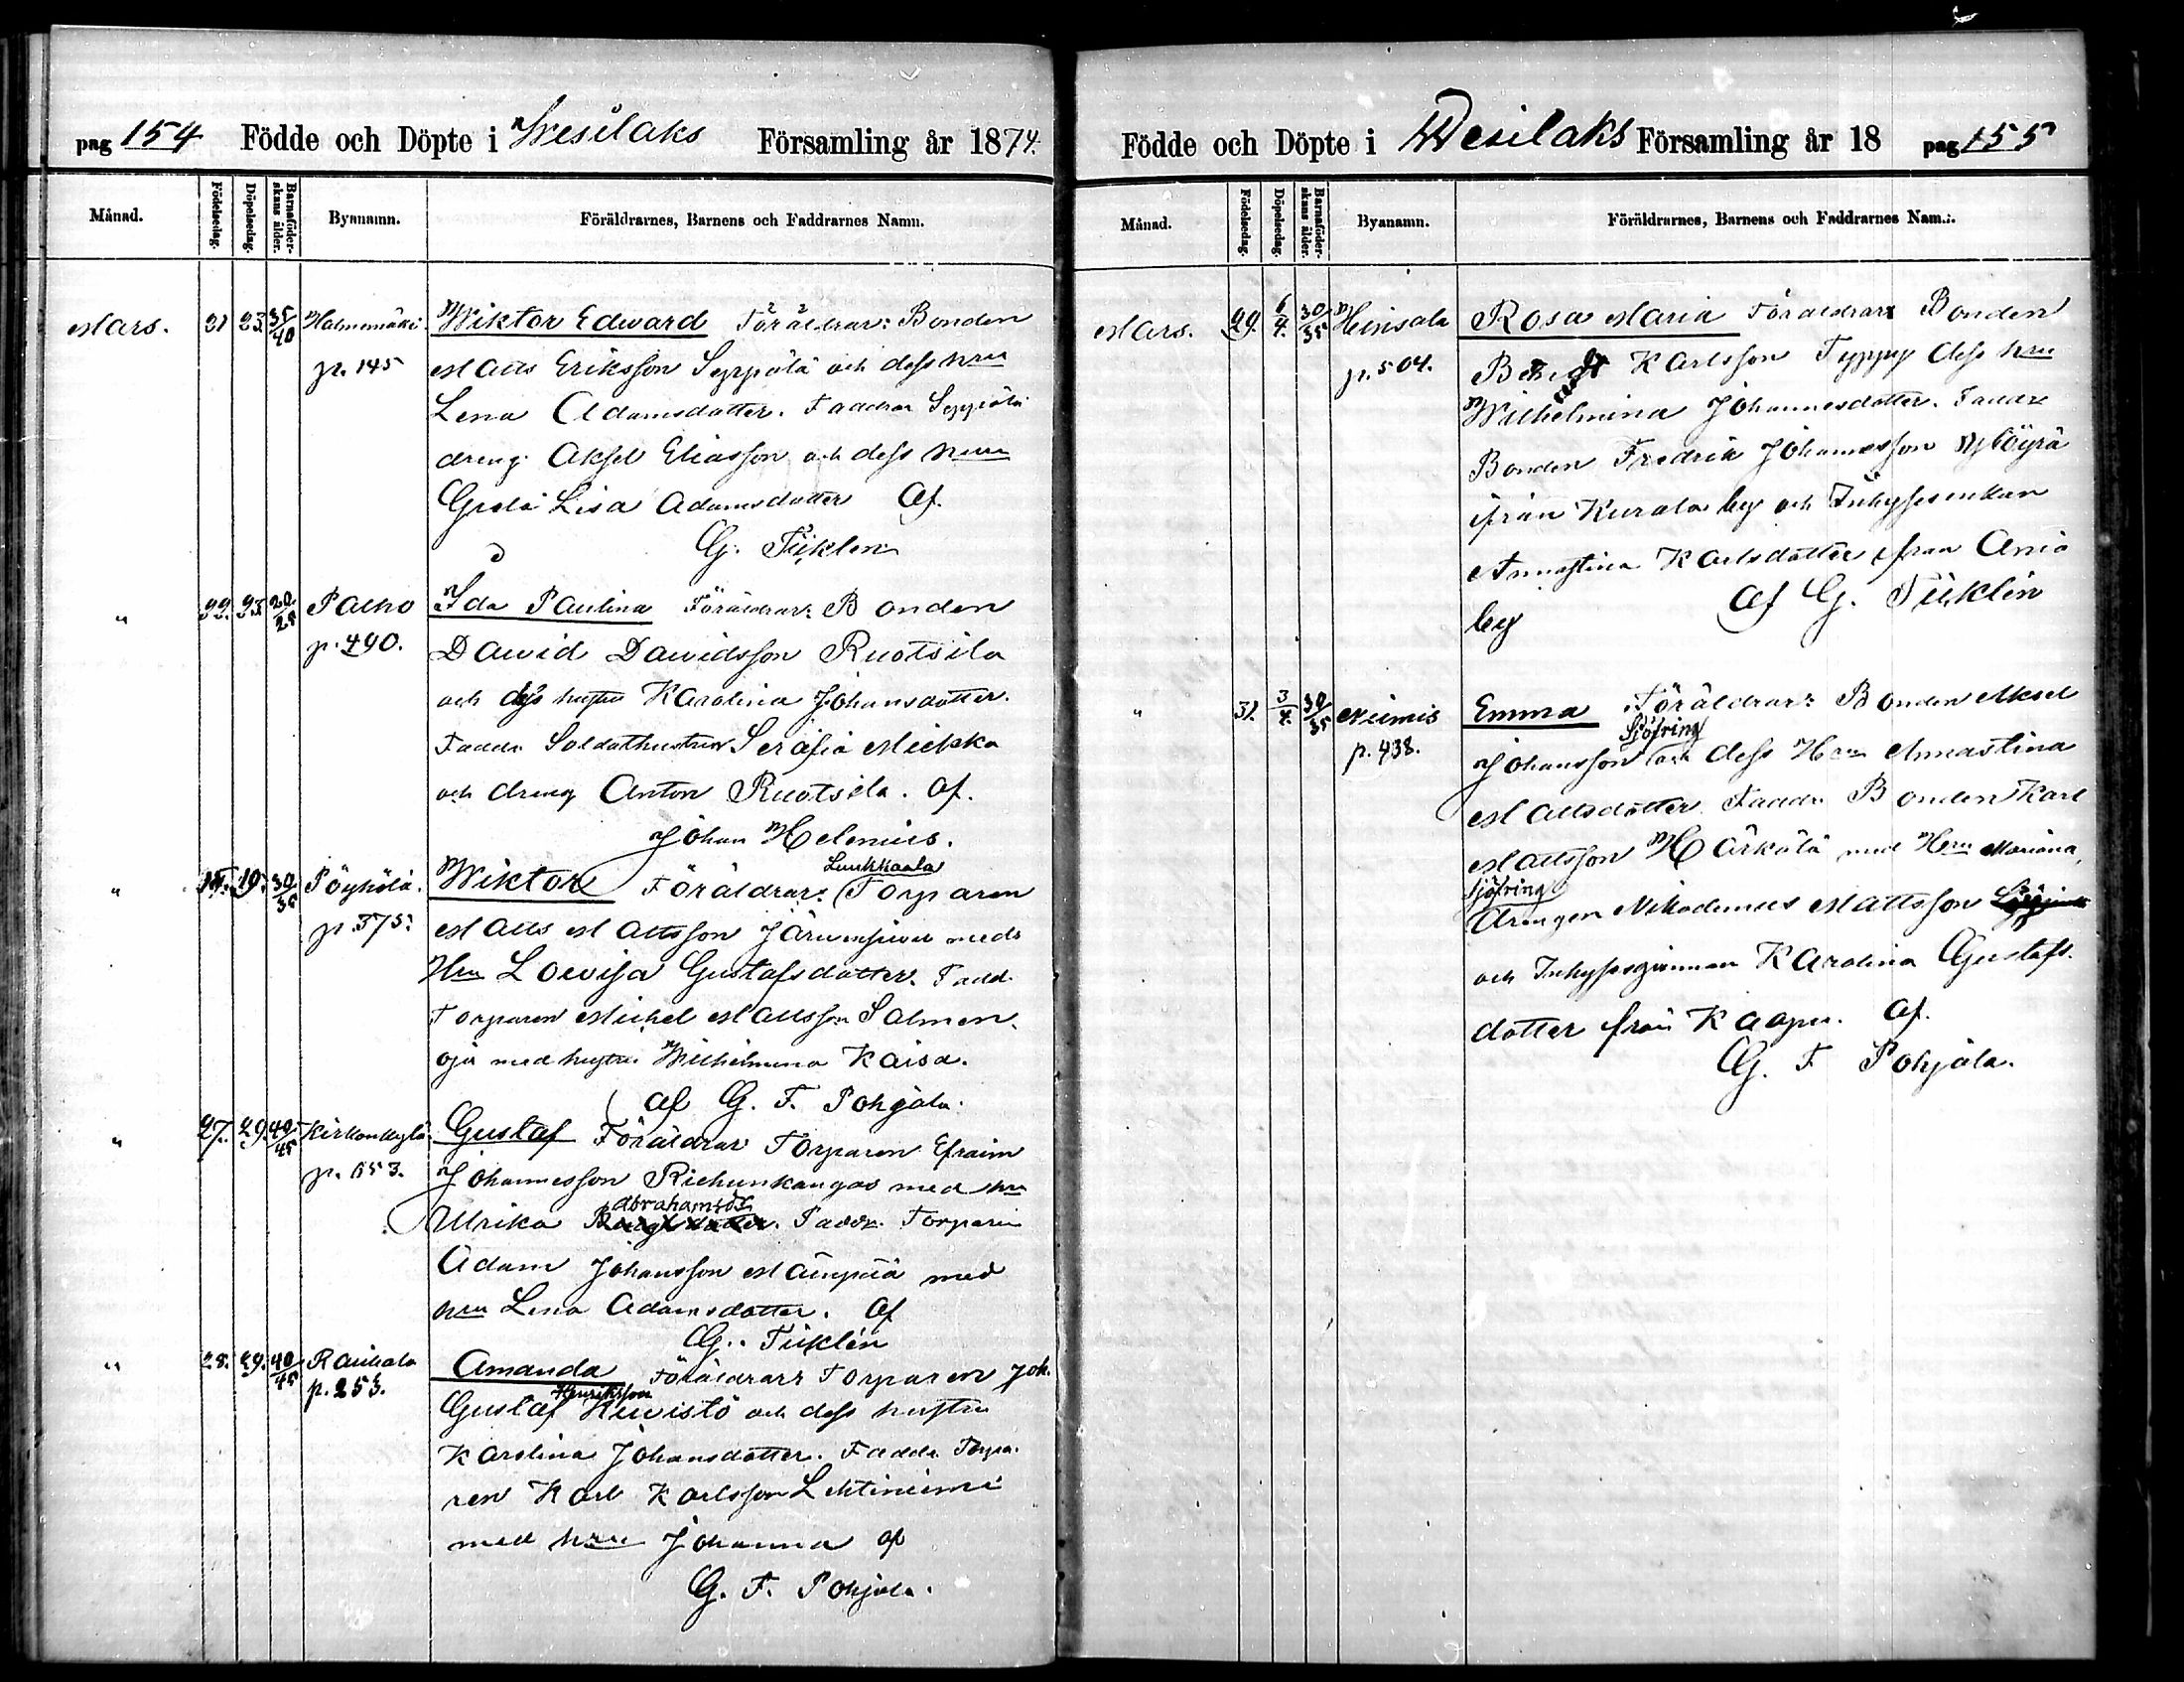 pag 154 Födde och Döpte i Wesilaks Församling år 1874.
Månad. Födelsedag. Döpelsedag. Barnaföderskans ålder. Byanamn. Föräldrarnes, Barnens och Faddrarnes Namn.
Mars. 21 23. 35/40 Halmemäki Wiktor Edward Föräldrar: Bonden
p. 145 Matts Eriksson Seppälä och dess hru
Lena Adamsdotter. Faddrar Seppälä
dreng Aksel Eliasson och dess hru
Greta Lisa Adamsdotter Af.
G. Tiiklén
" 22. 23. 20/25 Palho Ida Paulina Föräldrar: Bonden
p. 490. Dawid Dawidsson Ruotsila
och dess hustru Karolina Johansdotter.
Faddr. Soldathustrun Serafia
och dreng Anton Ruotsila. Af.
Johan Helenius.
" 19. 30/35 Pöyhölä. Wiktor Föräldrar: (Torparen
Luukkaala
p. 375. Matts Mattsson med
Hru Lovisa Gustafsdotter. Fadd.
Torparen Michel Mattsson Salmen-
oja med hustru Wilhelmina Kaisa.
af G. F. Pohjala.
" 27. 29. 40/45 Kirkonkylä Gustaf Föräldrar Torparen Efraim
p. 653. Johannesson Riehunkangas med hru
Abrahamsdr
Ulrika Bengtsdotter. Faddr. Torparen
Adam Johansson Mäenpää med
hru Lena Adamsdotter. Af
G. Tiiklén
" 28. 29. 40/45 Rauhala Amanda Föräldrar: Torparen Joh.
p. 253. Henriksson
Gustaf Kuwistö och dess hustru
Karolina Johansdotter. Faddr. Torpa-
ren Karl Karlsson Lehtiniemi
med hru Johanna af
G. F. Pohjala.
Födde och Döpte i Wesilaks Församling år 18 pag 155
Månad. Födelsedag. Döpelsedag. Barnaföderskans ålder. Byanamn. Föräldrarnes, Barnens och Faddrarnes Namn.
Mars. 29. 6/4. 30/35 Hinsala Rosa Maria Föräldrar: Bonden
p. 504. Karlsson Typpy dess hru
Wilhelmina Johannesdotter. Faddr.
Bonden Fredrik Johansson Nöyrä
ifrån Kurala by och Inhysesenkan
Annastina Karlsdotter ifrån Ania
by Af G. Tiiklén
" 31. 3/4. 30/35 Niemis Emma Föräldrar: Bonden Aksel
Sjöfring
p. 438. Johansson och dess Hru Annastina
Mattsdotter Faddr. Bonden Karl
Mattsson Härkälä med Hru Mariana,
Sjöfring
drengen Nikodemus Mattsson
och Inhysesqvinnan Karolina Gustafs-
dotter från Kaapu. Af.
G. F Pohjala.